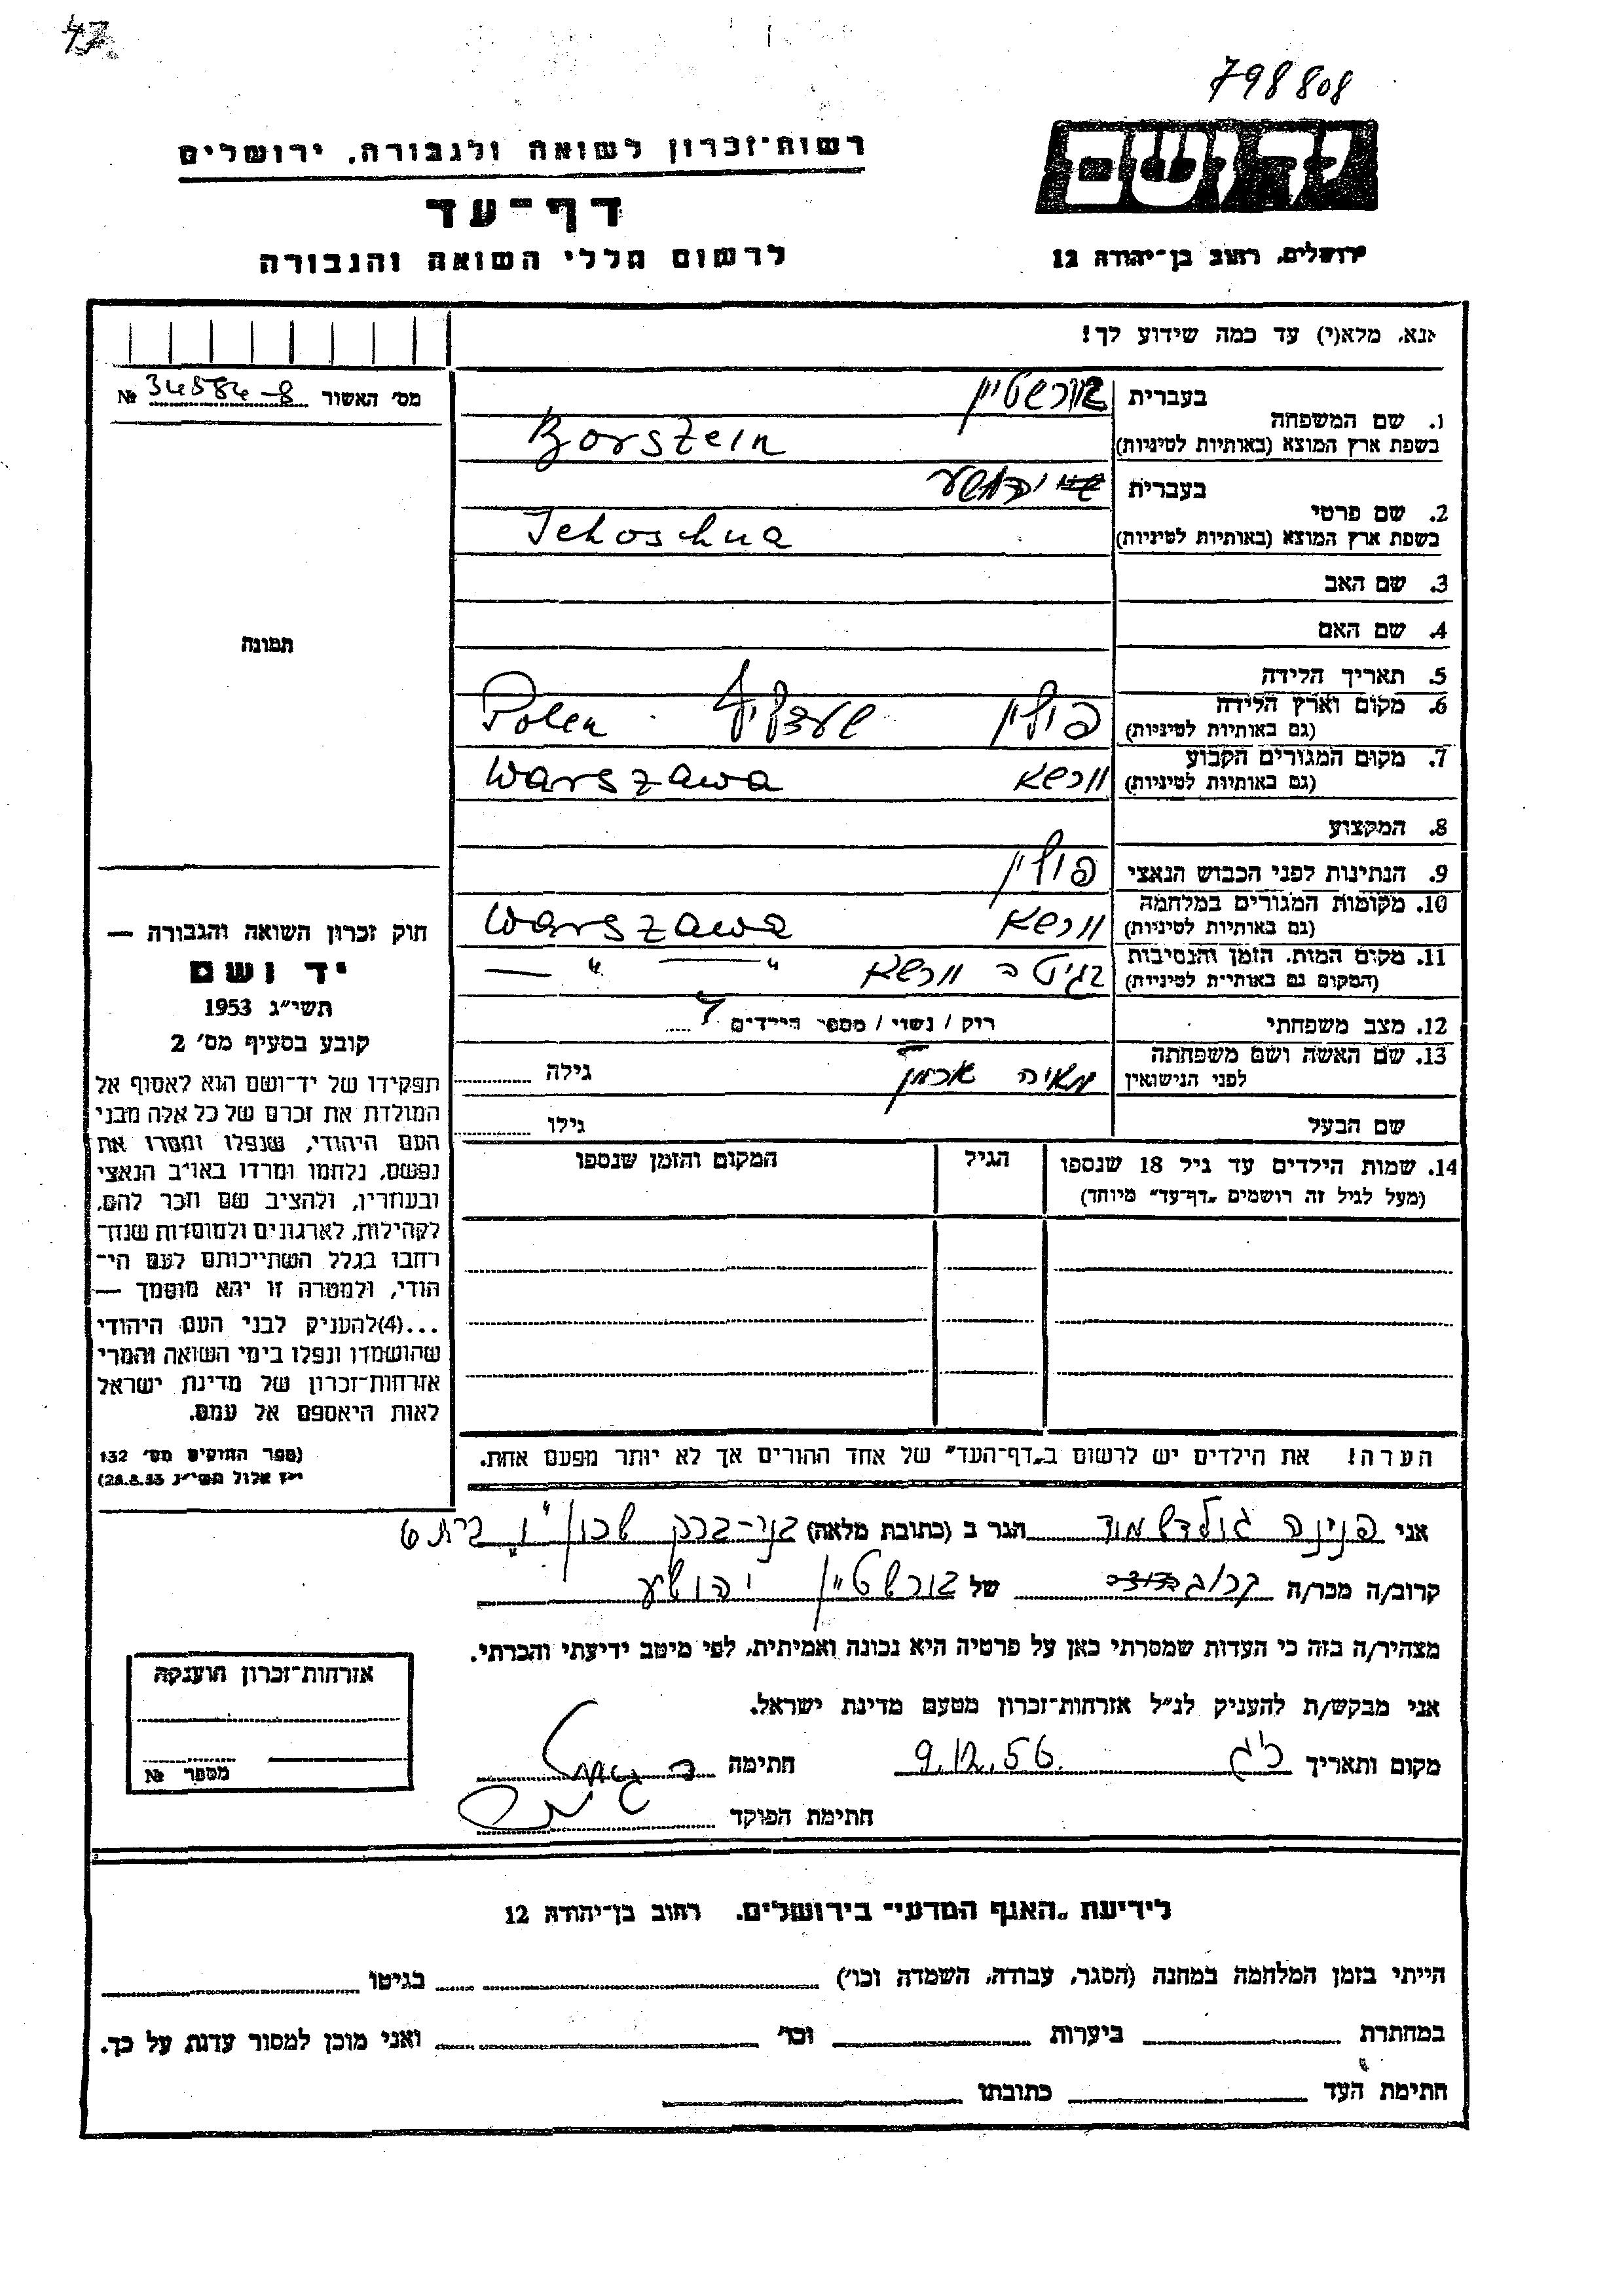 47
798808
רשות-זכרון לשואה ולגבורה, ירושלים
יד ושם
דף-עד
לרשום חללי השואה והגבורה
ירושלים, רחוב בן-יהודה 12
אנא, מלא(י) עד כמה שידוע לך!
מס' האשור № 34584-8
1. שם המשפחה
בעברית בורשטיין
בשפת ארץ המוצא (באותיות לטיניות) Borszein
2. שם פרטי
בעברית יהושע
בשפת ארץ המוצא (באותיות לטיניות) Jehoschua
3. שם האב
4. שם האם
תמונה
5. תאריך הלידה
6. מקום וארץ הלידה
(גם באותיות לטיניות) פולין Polen
7. מקום המגורים הקבוע
(גם באותיות לטיניות) וורשא Warszawa
8. המקצוע
9. הנתינות לפני הכבוש הנאצי פולין
10. מקומות המגורים במלחמה
(גם באותיות לטיניות) וורשא Warszawa
11. מקום המות, הזמן והנסיבות
(המקום גם באותיות לטיניות) בגיטו וורשא — " — " —
12. מצב משפחתי רוק / נשוי / מספר הילדים
13. שם האשה ושם משפחתה
לפני הנישואין גילה
שם הבעל גילו
14. שמות הילדים עד גיל 18 שנספו הגיל המקום והזמן שנספו
(מעל לגיל זה רושמים „דף-עד" מיוחד)
הערה! את הילדים יש לרשום ב„דף-העד" של אחד ההורים אך לא יותר מפעם אחת.
חוק זכרון השואה והגבורה —
יד ושם
תשי"ג 1953
קובע בסעיף מס' 2
תפקידו של יד-ושם הוא לאסוף אל
המולדת את זכרם של כל אלה מבני
העם היהודי, שנפלו ומסרו את
נפשם, נלחמו ומרדו באויב הנאצי
ובעוזריו, ולהציב שם וזכר להם,
לקהילות, לארגונים ולמוסדות שנח-
רבו בגלל השתייכותם לעם הי-
הודי, ולמטרה זו יהא מוסמך —
...(4)להעניק לבני העם היהודי
שהושמדו ונפלו בימי השואה והמרי
אזרחות-זכרון של מדינת ישראל
לאות היאספם אל עמם.
(ספר החוקים מס' 132
י"ז אלול תשי"ג 28.8.53)
אני פנינה גולדשמיד הגר ב (כתובת מלאה) בני-ברק שכון
קרוב/ה מכר/ה קרוב של בורשטיין יהושע
מצהיר/ה בזה כי העדות שמסרתי כאן על פרטיה היא נכונה ואמיתית, לפי מיטב ידיעתי והכרתי.
אני מבקש/ת להעניק לנ"ל אזרחות-זכרון מטעם מדינת ישראל.
מקום ותאריך 9.12.56 חתימה
חתימת הפוקד
אזרחות-זכרון הוענקה
מספר №
לידיעת „האגף המדעי" בירושלים, רחוב בן-יהודה 12
הייתי בזמן המלחמה במחנה (הסגר, עבודה, השמדה וכו') בגיטו
במחתרת ביערות וכו' ואני מוכן למסור עדות על כך.
חתימת העד כתובתו